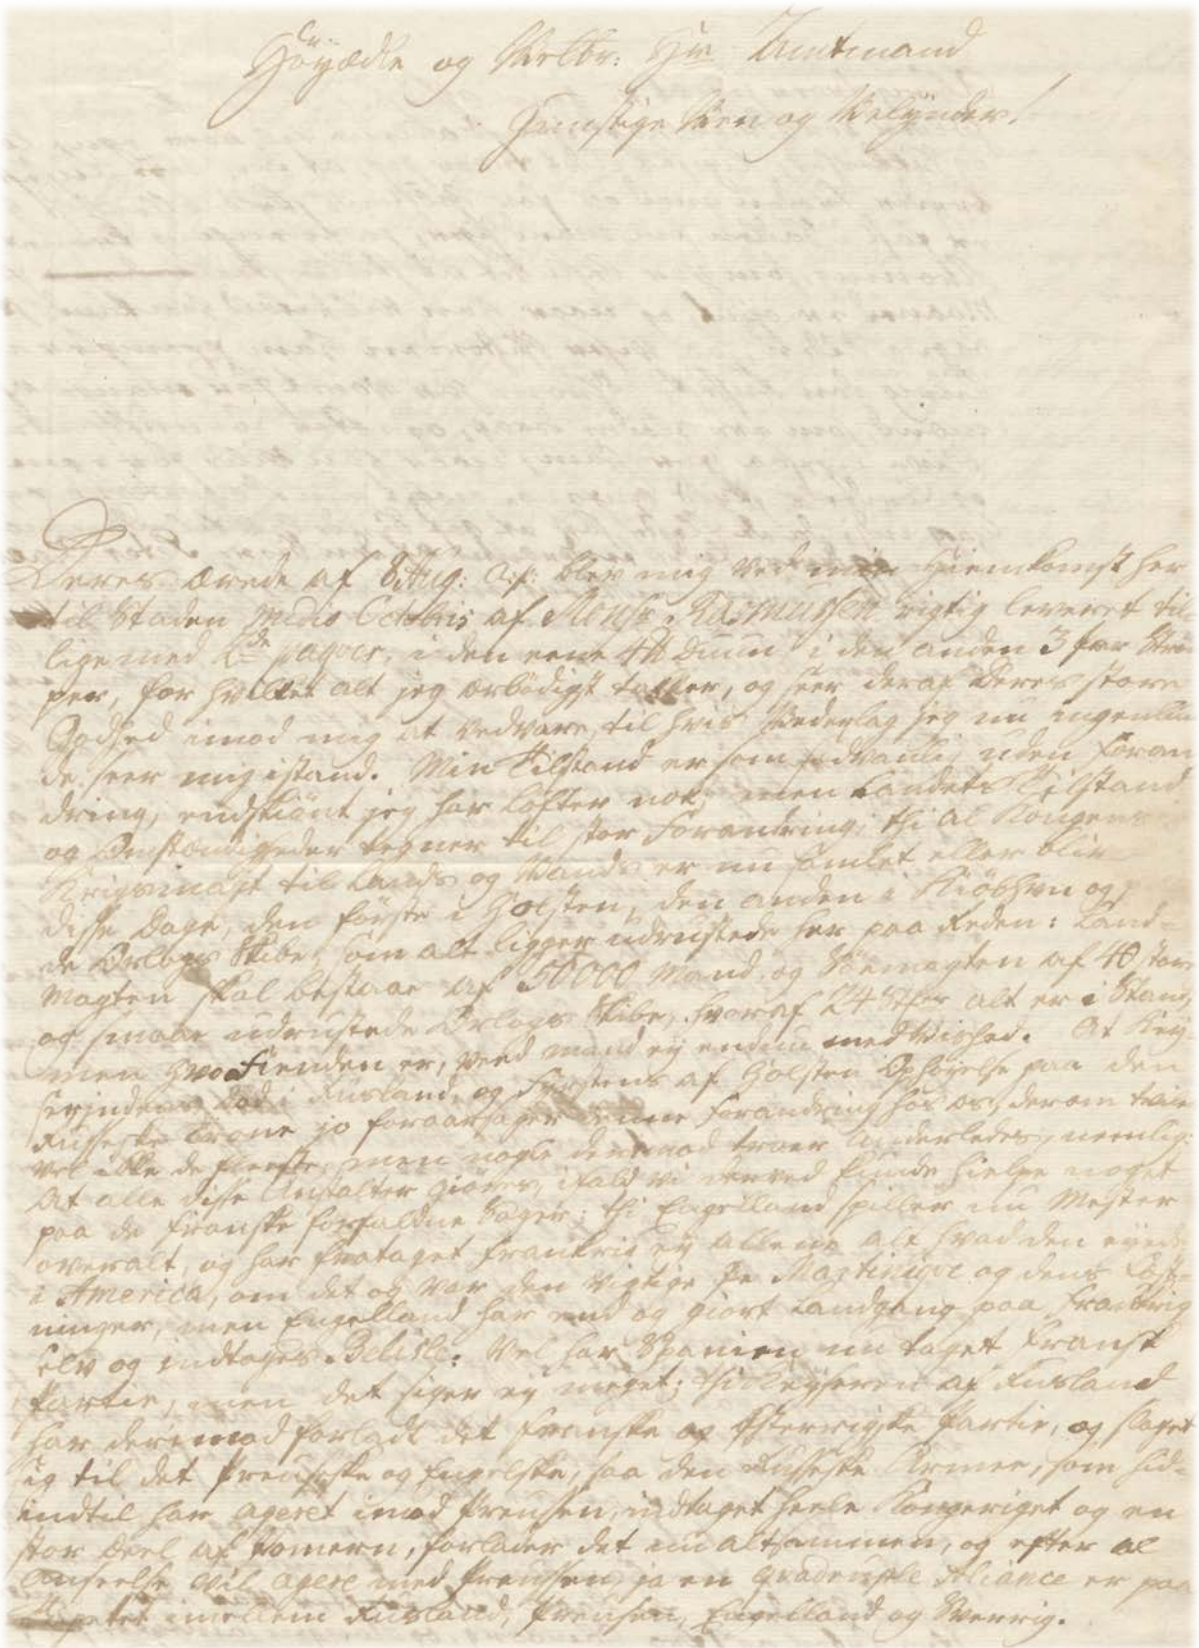 Höyædle og Velbr: Hr Amtmand
Gunstige Ven og Velynder!
Deres ærede af 8 Aug: a: p: blev mig ved min Hiemkomst her
til Staden medio Octobris af Monsr Rasmussen rigtig leveret til
lige med 2de paqver, i den eene 4 ℔ Duun i den anden 3 par Strøm
per, for hvilket alt jeg ærbødigst takker, og seer deraf Deres store
Godhed imod mig at vedvare, til hvis Vederlag jeg nu ingenlun
de seer mig istand. Min Tilstand er som sædvanlig uden Foran
dring, endskiönt jeg har løfter nok, men Landets Tilstand
og Omstændigheder tegner til stor Forandring; thi al Kongens
Krigsmagt til Lands og Vands er nu samlet eller blir
disse Dage, den første i Holsten, den anden i Kiöbhvn og
de Orlogs Skibe, som alt ligger udrustede her paa Reden: Land-
Magten skal bestaae af 50000 Mand, og Söemagten af 40 store
og smaae udrustede Orlogs Skibe, hvoraf 24 Stkr alt er i Stand,
men hvo Fienden er, veed mand ey endnu med Vished. At Key
serindens Død i Rusland, og Hertugens af Holsten Ophøyelse paa den
Russiske Trone jo foraarsager denne Forandring hos os, derom tvivle
vel ikke de fleeste, men nogle derimod troer anderledes, neml:
At alle disse Anstalter giøres, ifald vi derved kunde hielpe noget
paa de Franske forfaldne Sager; thi Engelland spiller nu Mester
overalt, og har frataget Frankrig ey allene alt hvad den eyede
i America, om det og var den vigtige Øe Martinique og dens Fæst-
ninger, men Engelland har end og giort Landgang paa Frankrig
selv og indtaget Belisle. Vel har Spanien nu taget Fransk
Partie, men det siger ey meget; thi Keyseren af Rusland
har derimod forladt det Franske og Østerrigske Partie, og slaget
sig til det Preussiske og Engelske, saa den Russiske Armee, som hid-
indtil har ageret imod Preussen, indtaget heele Kongeriget og en
stor Deel af Pomern, forlader det nu altsammen, og efter al
Anseelse vil agere med Preussen, ja en qvadruple Aliance er paa
Tapetet imellem Rusland, Preusen, Engelland og Sverrig.